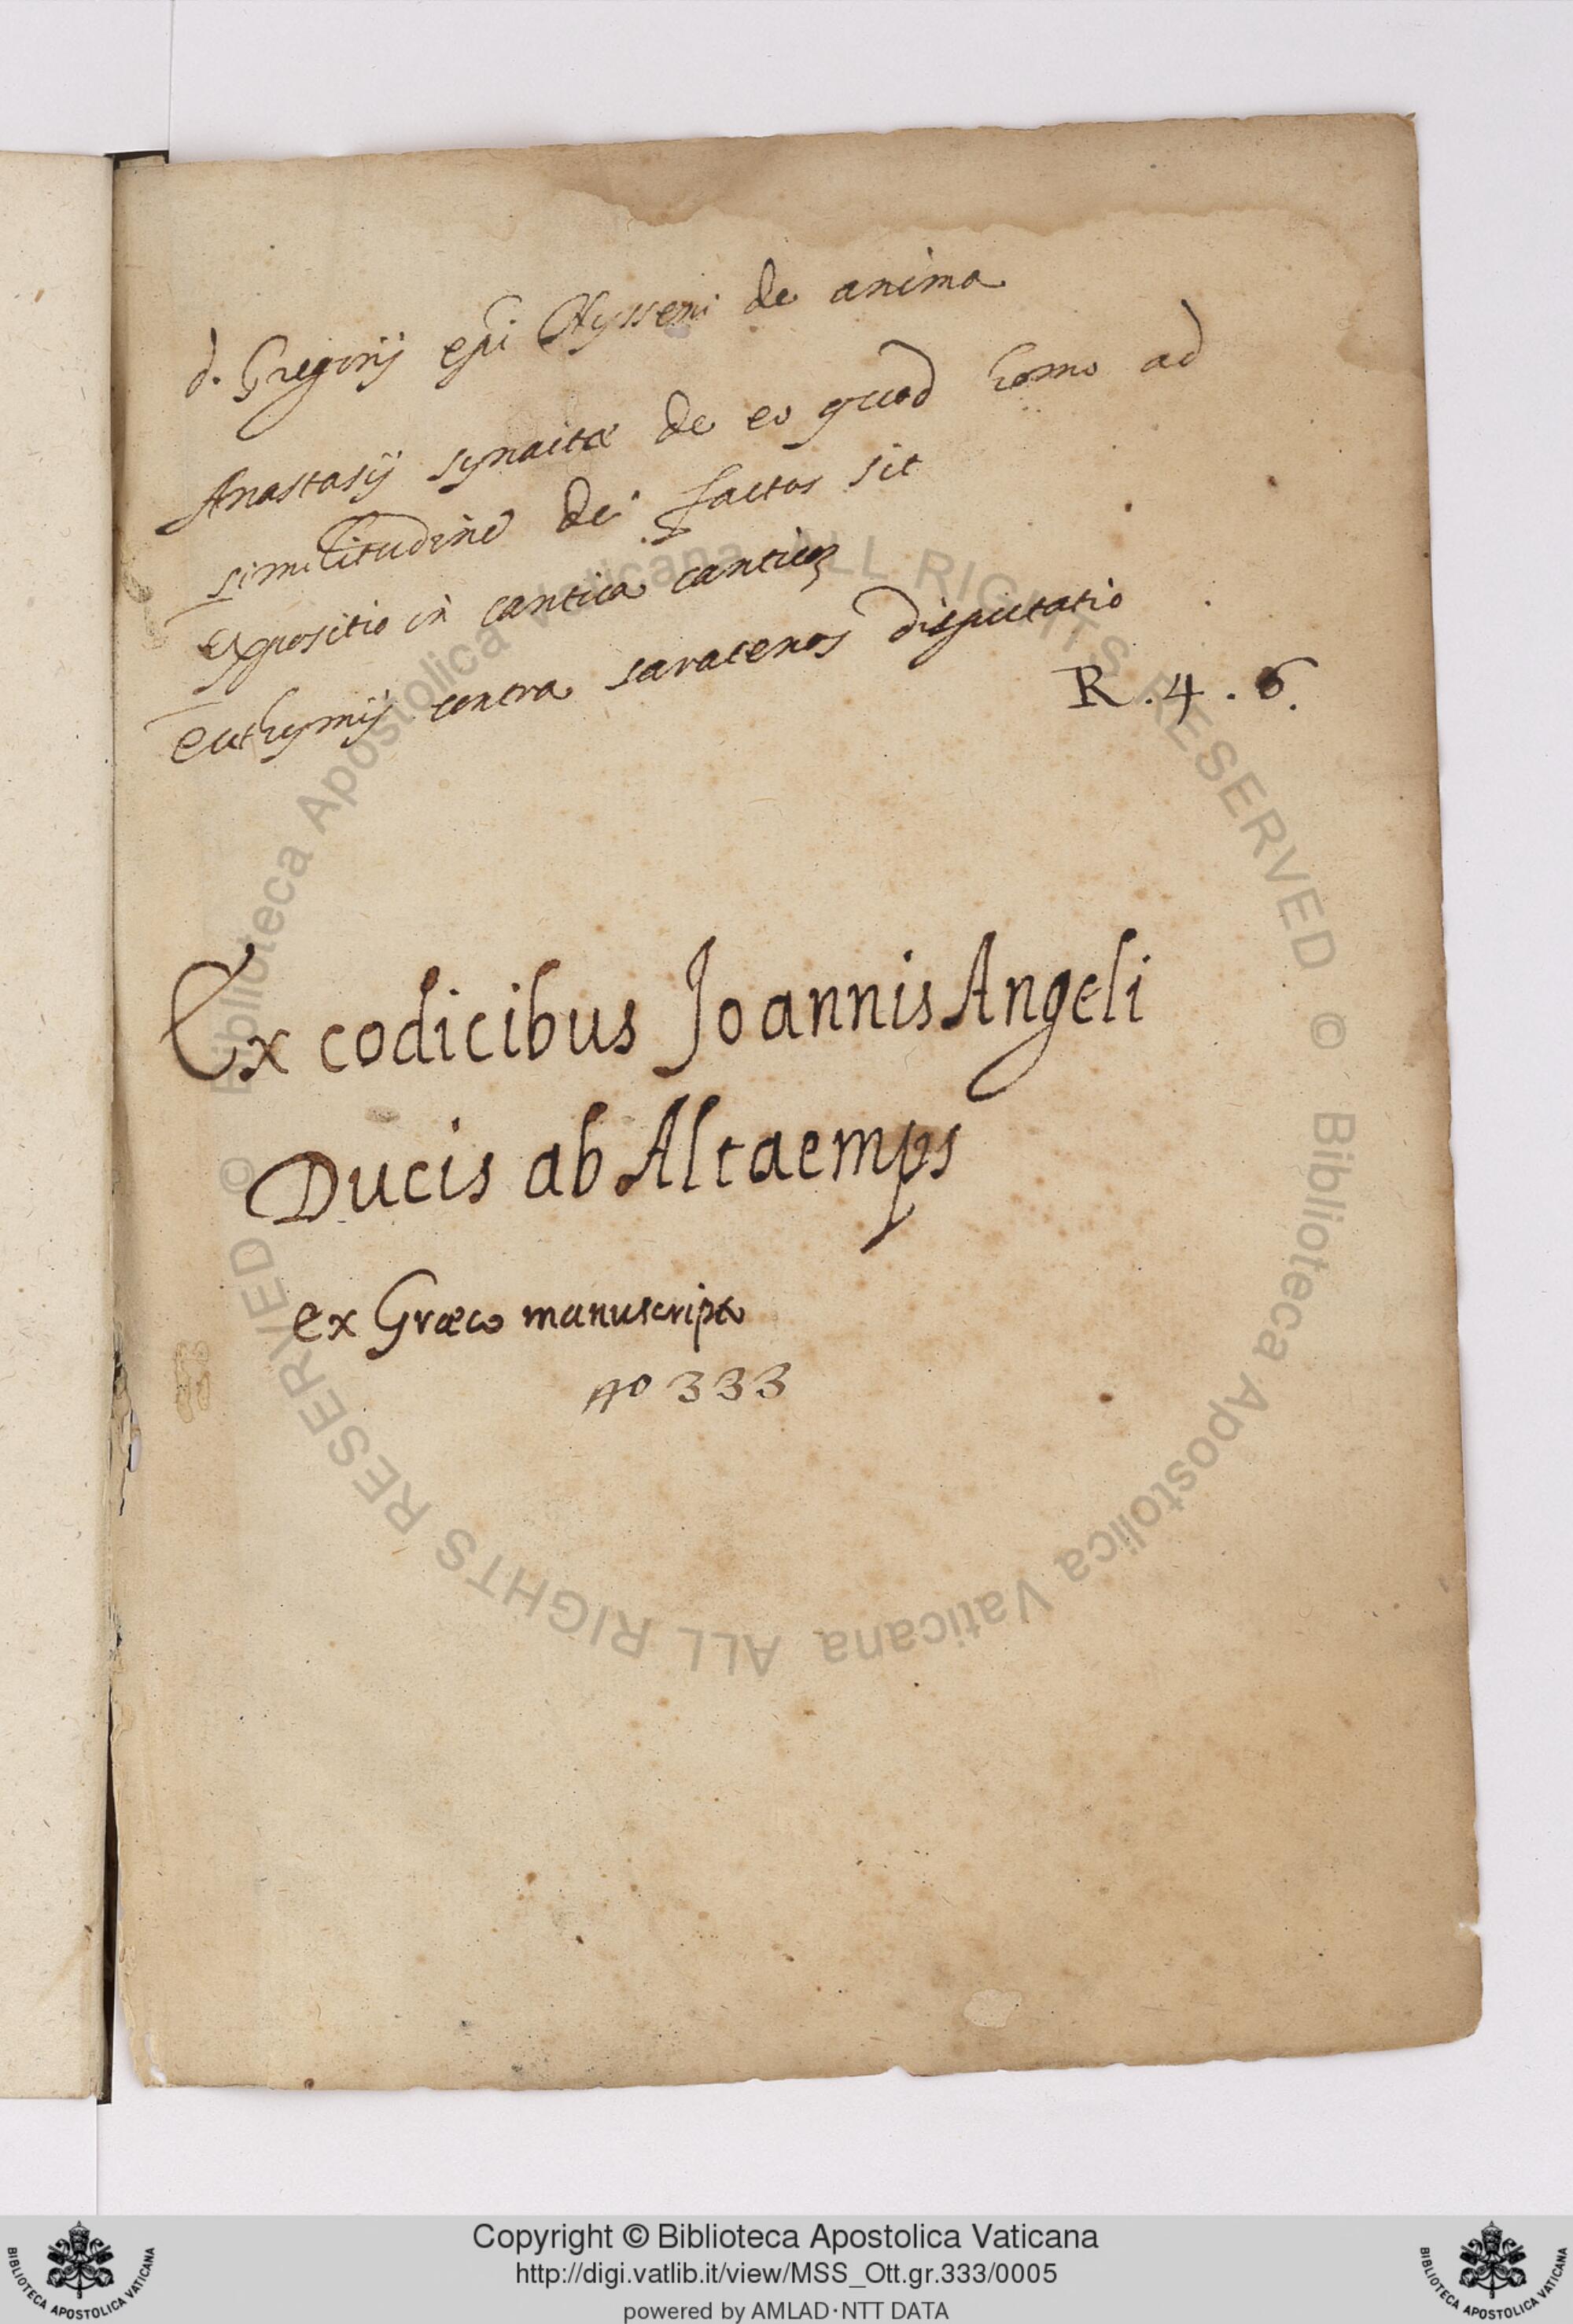 d. Gregorij epi Nysseni de anima
Anastasij synaitæ de eo quod homo ad
similitudine dei factus sit
Expositio in cantica canticoꝝ
Euthymij contra saracenos disputatio
R. 4. 6.
Ex codicibus Joannis Angeli
Ducis ab Altaemps
ex Græco manuscripto
no 333
© Biblioteca Apostolica Vaticana ALL RIGHTS RESERVED © Biblioteca Apostolica Vaticana ALL RIGHTS RESERVED
Copyright © Biblioteca Apostolica Vaticana
http://digi.vatlib.it/view/MSS_Ott.gr.333/0005
powered by AMLAD·NTT DATA
BIBLIOTECA APOSTOLICA VATICANA
BIBLIOTECA APOSTOLICA VATICANA